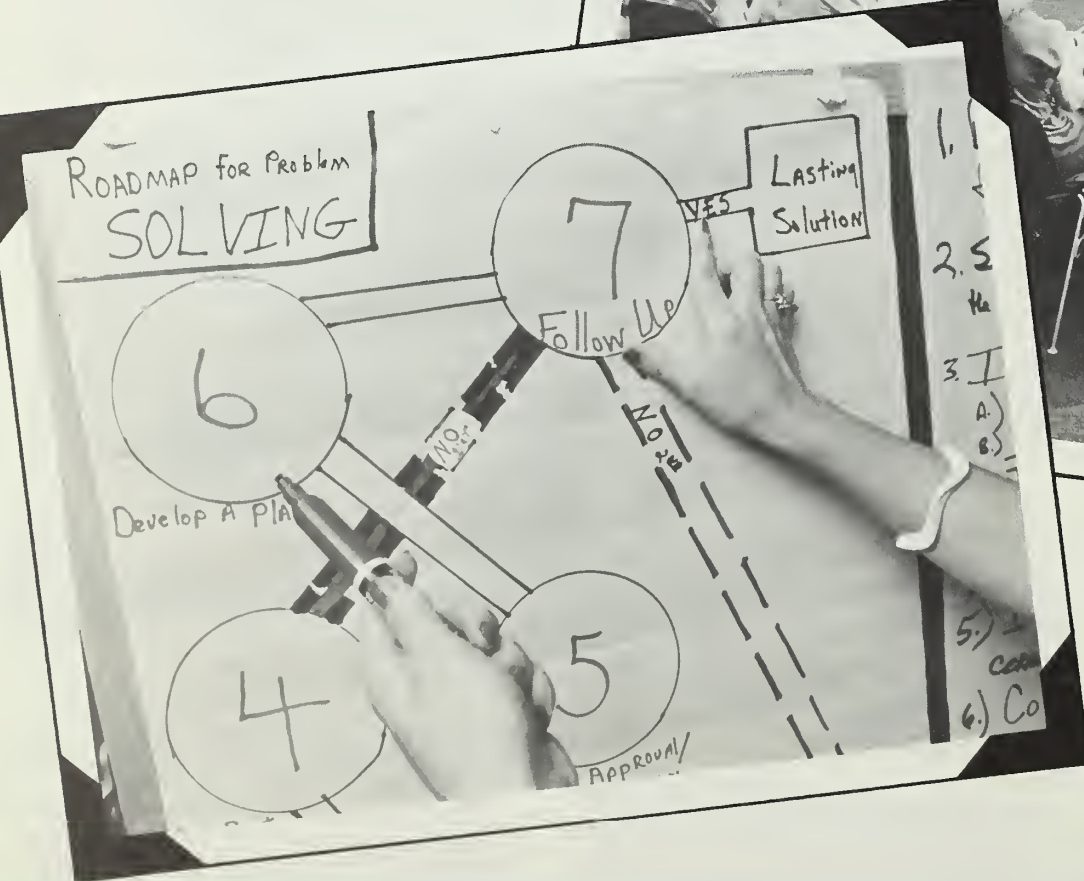 ROADMAP for Problem
SOLVING
7
Follow Up
YES
Lasting
Solution
6
Develop A
NO
NO
4
5
APPROVAL/
1.
2. S
the
3. I
A.)
B.)
5.)
6.) Co